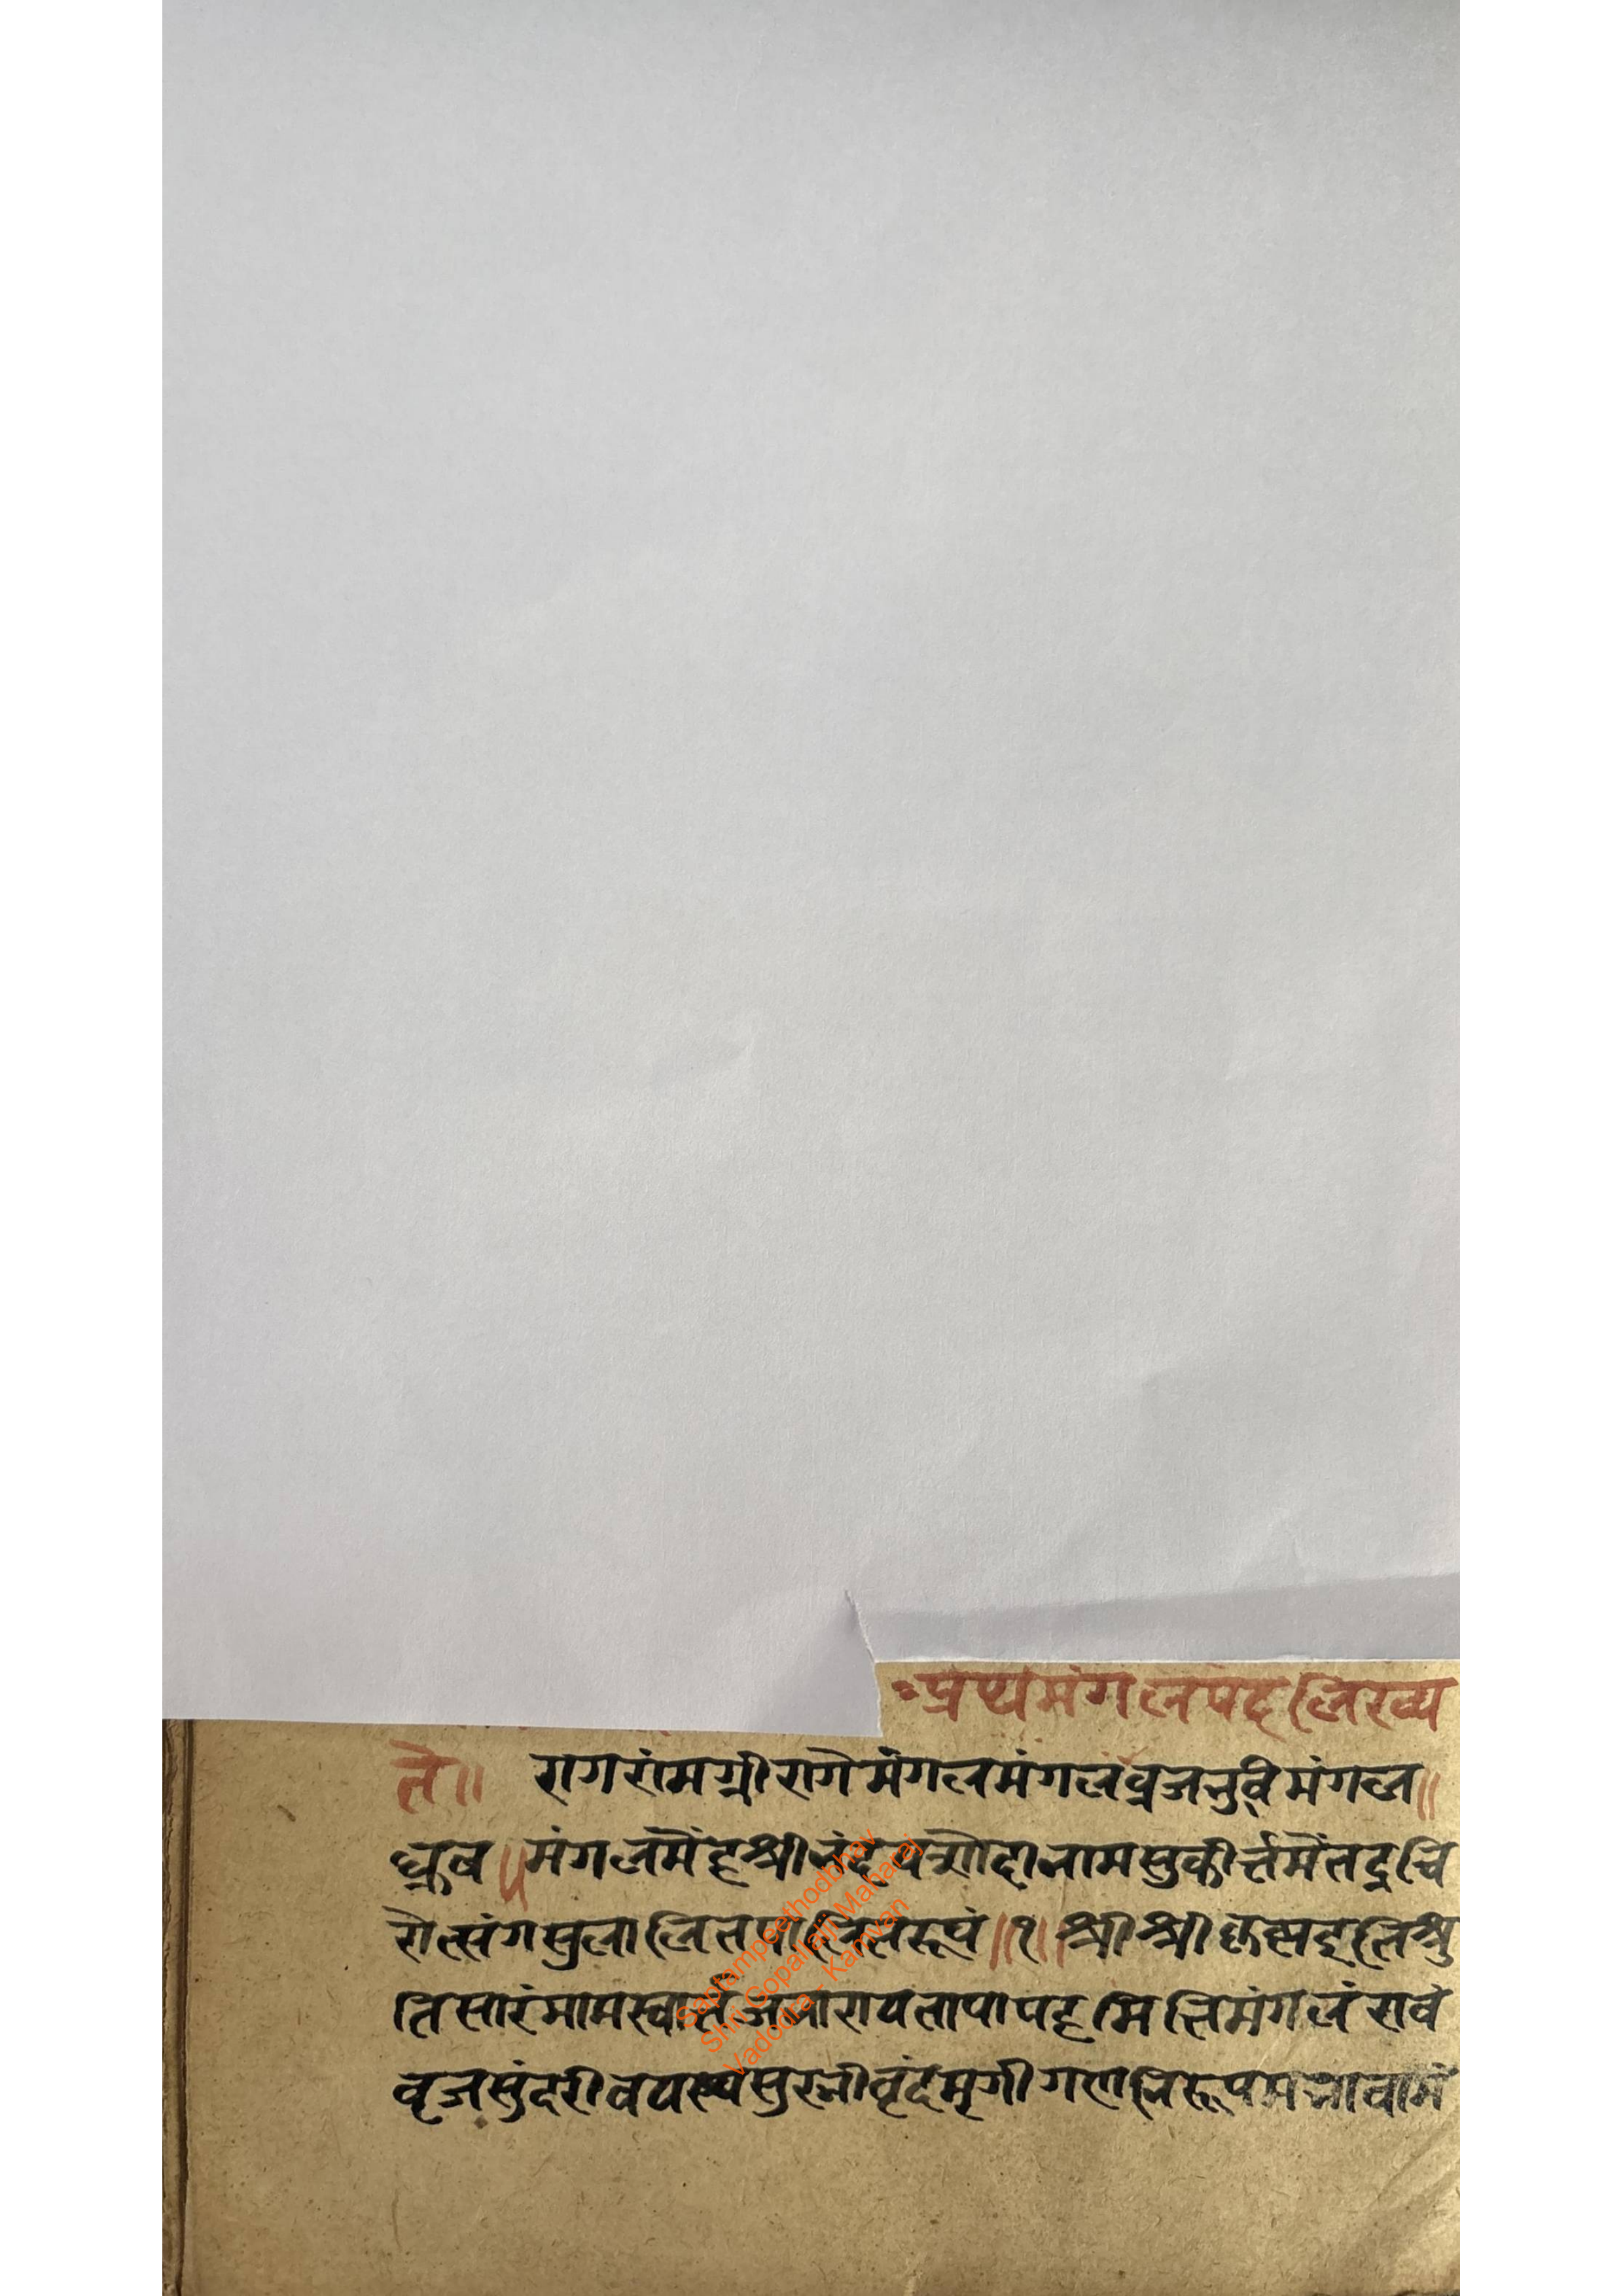 प्रथमंगलपदलिख्य
ते॥ रागरांमग्री रागेमंगलमंगलंव्रजभुविमंगल॥
ध्रुव॥ मंगलमेंहश्रीनंदयशोदानामसुकीर्त्तमेंतद्रुचि
रोत्संगसुलालितपालितरूपं॥१॥श्रीश्रीकृष्णइतिश्रु
तिसारंमामस्वार्त्तजनाशयतापापहमितिमंगलंरावं
वृजसुंदरीवयस्यसुरभीवृंदमृगीगणनिरूपमभावामं
Saptampeethodbhav
Shri Gopallalji Maharaj
Vadodra - Kamvan